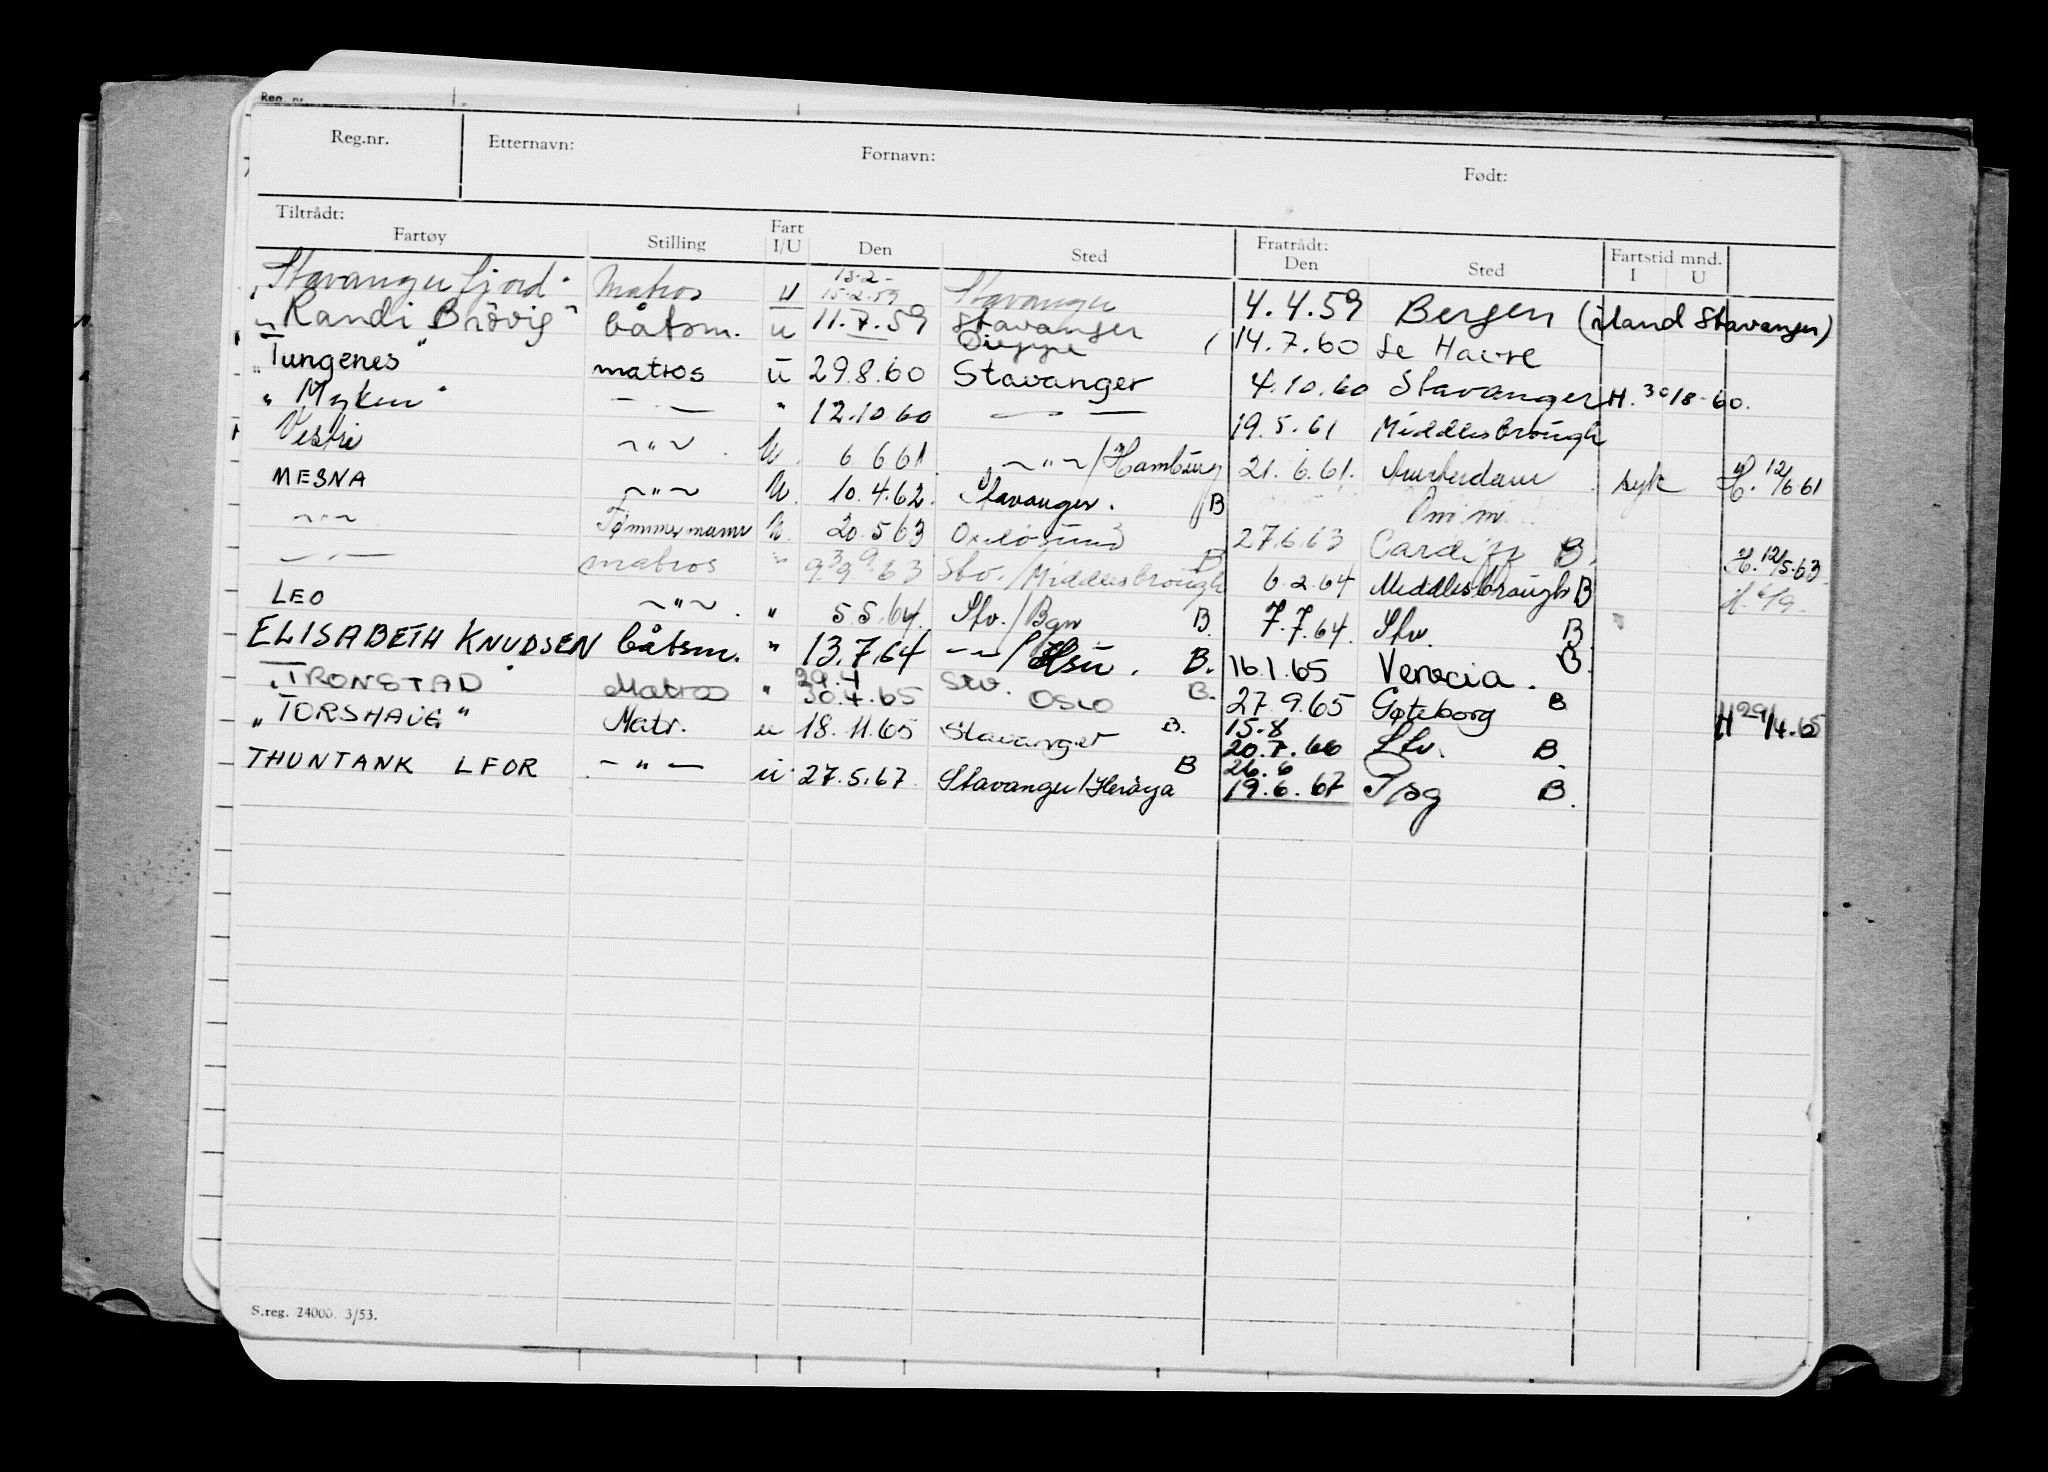 Reg. nr.
Reg.nr. Etternavn: Fornavn: Født:
Tiltrådt: Fratrådt: Fartstid mnd.
Fartøy Stilling Fart I/U Den Sted Den Sted I U
„Stavangerfjord" Matros u 13.2- 15.2.59 Stavanger 4.4.59 Bergen (iland Stavanger)
„Randi Brövig" båtsm. u 11.7.59 Stavanger Dieppe 14.7.60 Le Havre
„Tungenes" matros u 29.8.60 Stavanger 4.10.60 Stavanger H. 30/8-60.
„Myken" — — " 12.10.60 — — 19.5.61 Middlesbrough
Vestri ~"~ U. 6.6.61 ~"~/Hamburg 21.6.61. Amsterdam syk H. 12/6 61
MESNA ~"~ U. 10.4.62. Stavanger. B
~"~ Tømmermann U. 20.5.63 Oxelösund B 27.6.63 Cardiff B. H. 12/5.63
— — matros " 9.9.63 Stv./Middlesbrough 6.2.64 Middlesbrough B
LEO ~"~ " 5.5.64. Stv./Bgn B. 7.7.64. Stv. B
ELISABETH KNUDSEN båtsm. " 13.7.64 —"—/Hsu. B. 16.1.65 Venecia. B.
„TRONSTAD Matros " 29.4 30.4.65 Stv. Oslo B. 27.9.65 Gøteborg B H 29/4.65
„TORSHAUG" Matr. u 18.11.65 Stavanger B. 15.8 20.7.66 Stv. B.
THUNTANK LFOR —"— u. 27.5.67. Stavanger/Herøya B 26.6 19.6.67 Tsg B.
S.reg. 24000. 3/53.